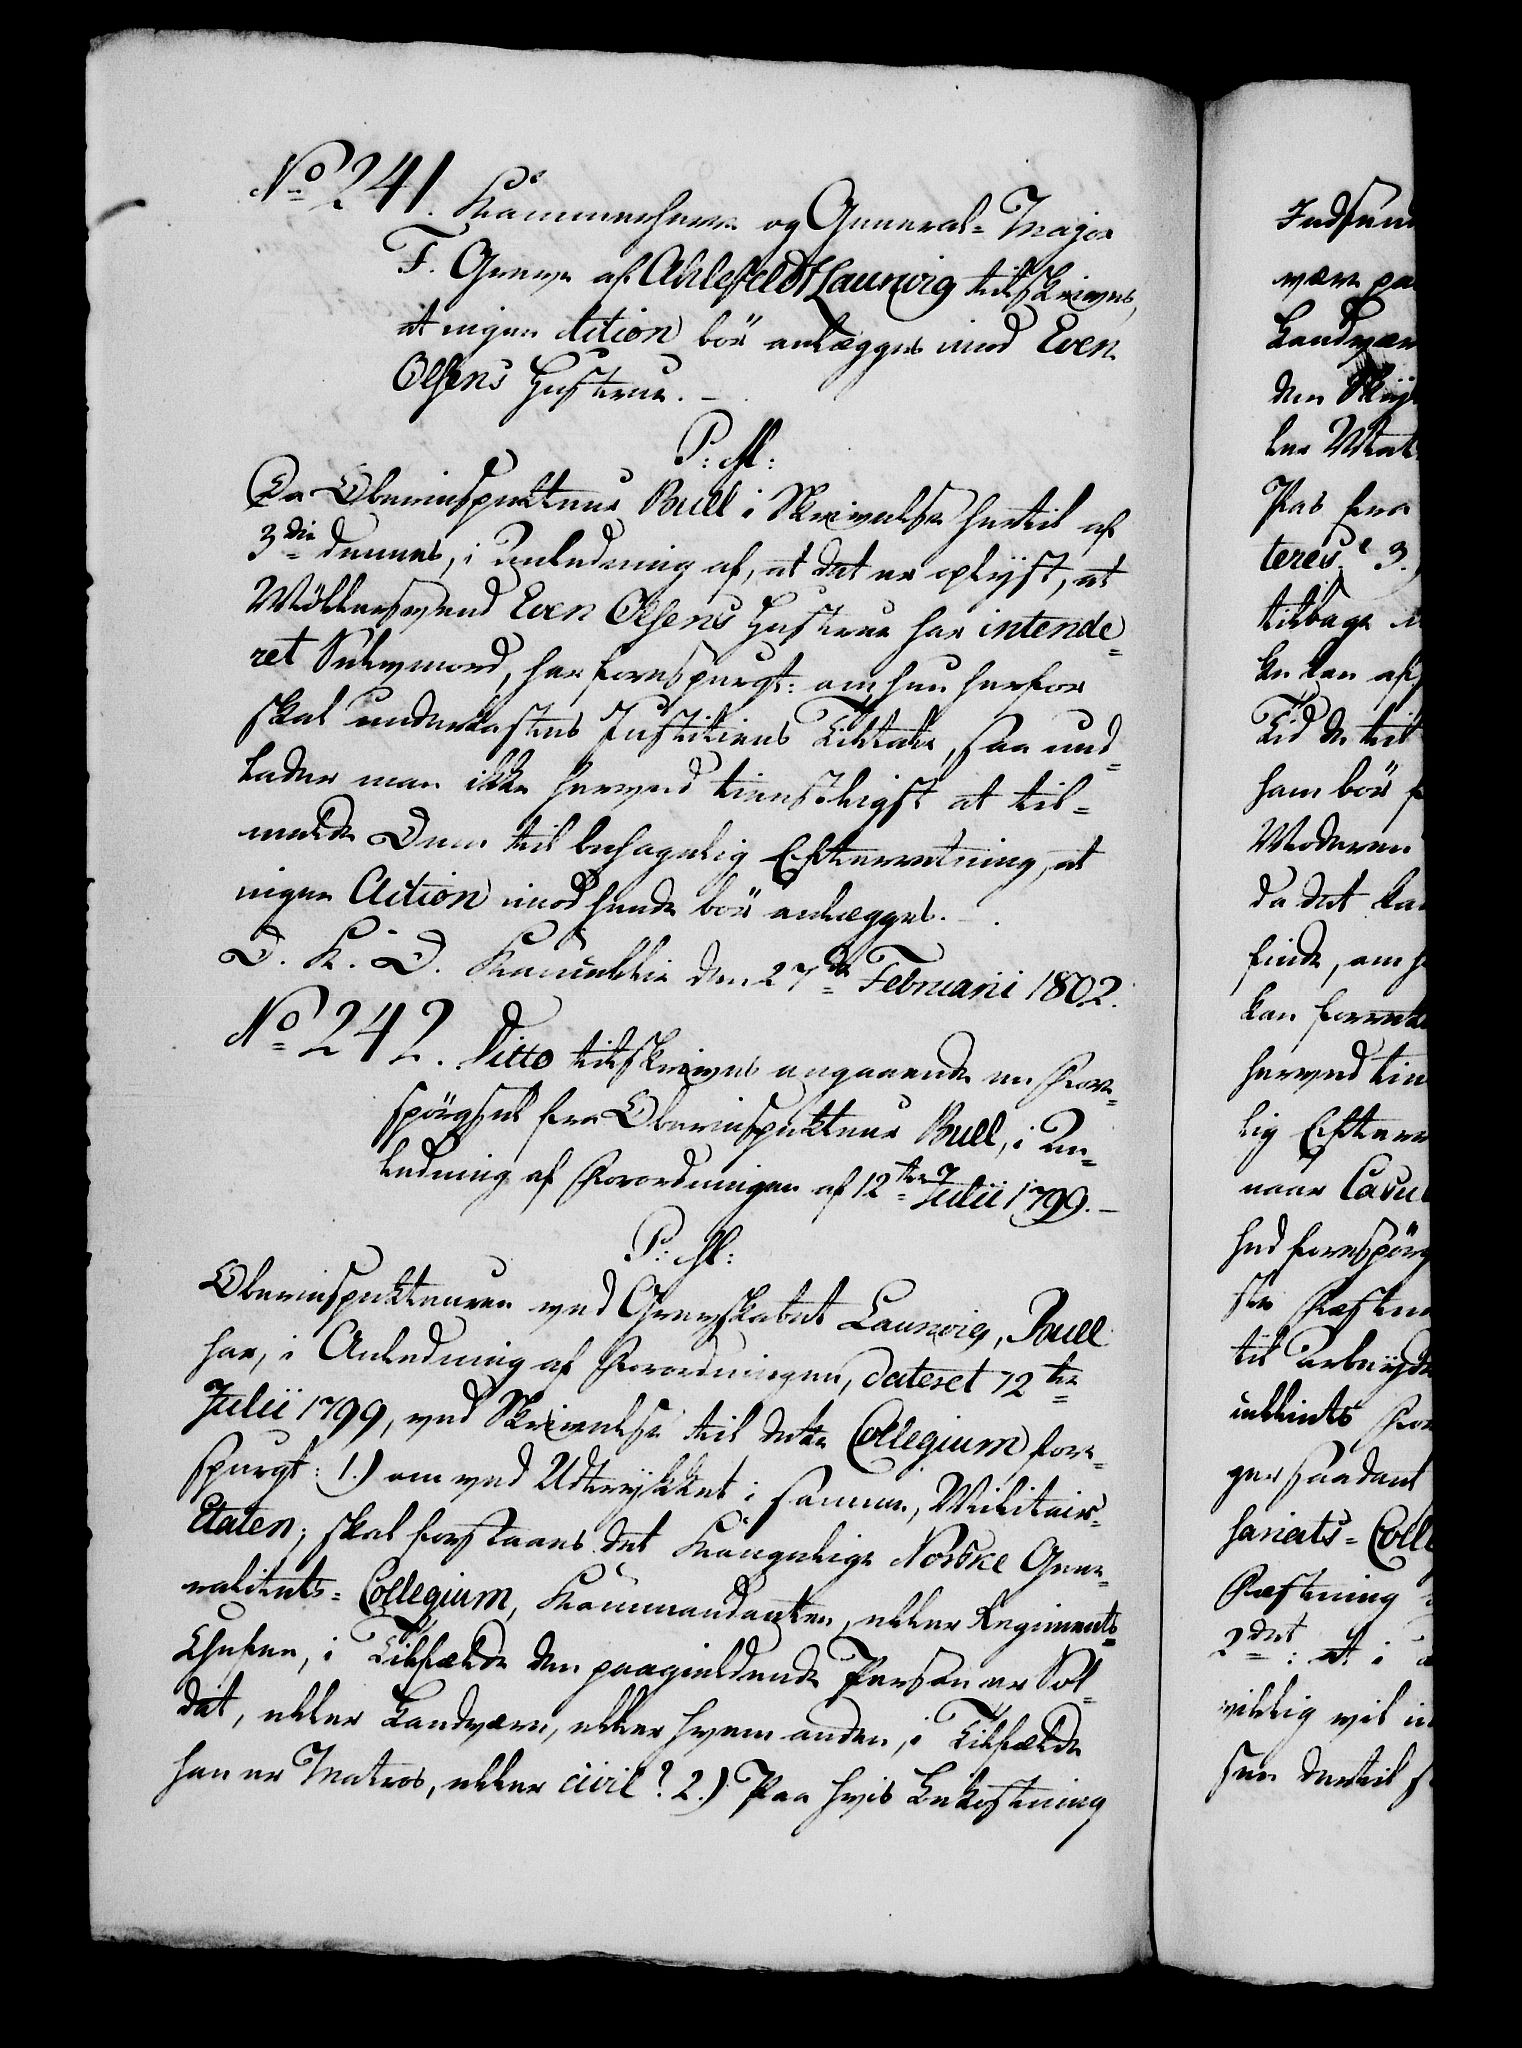 No 241. Kammerherre og General-Major
F. Greve af Ahlefeldt Laurwig tilskrives,
at ingen Action bör anlægges imod Even
Olsens Hustrue. -
P: M:
Da Oberinspekteur Bull i Skrivelse hertil af
3die dennes, i Anledning af, at det er oplyst, at
Möllersvend Even Olsens Hustrue har intende-
ret Sælvmord, har forespurgt: om hun herfor
skal underkastes Justitiens Tiltale, saa und-
lader man ikke herved tienstligst at til-
melde Dem til behagelig Efterretning, at
ingen Action imod hende bör anlægges. -
D. K. D. Kancellie den 27de Februarii 1802.
No 242. Ditto tilskrives angaaende en Fore-
spörgsel fra Oberinspekteur Bull, i An-
ledning af Forordningen af 12te Julii 1799. -
P: M:
Oberinspekteuren ved Grevskabet Laurvig, Bull
har, i Anledning af Forordningen, dateret 12te
Julii 1799, ved Skrivelse til dette Collegium fore-
spurgt: 1.) om ved Udtrykket i samme, Militair-
Etaten, skal forstaaes det Kongelige Norske Gene-
ralitets-Collegium, Kommandanten, eller Regiments-
Chefen, i Tilfælde den paagieldende Person er Sol-
dat, eller Landværn, eller hvem anden, i Tilfælde
han er Matros, eller civil? 2.) Paa hvis Bekostning
være
Landvær
den
Pas fra
teres? 3.)
tilbage
kan
Tid de til
ham bör
Moderen
da det kan
finde, om
kan
herved tien
lig Efterr
naar Casu
hed forespörg
til Arbeyde
ger saadant
sariats-Coll
Fæstning
2det: at i
villig vil
sen dertil